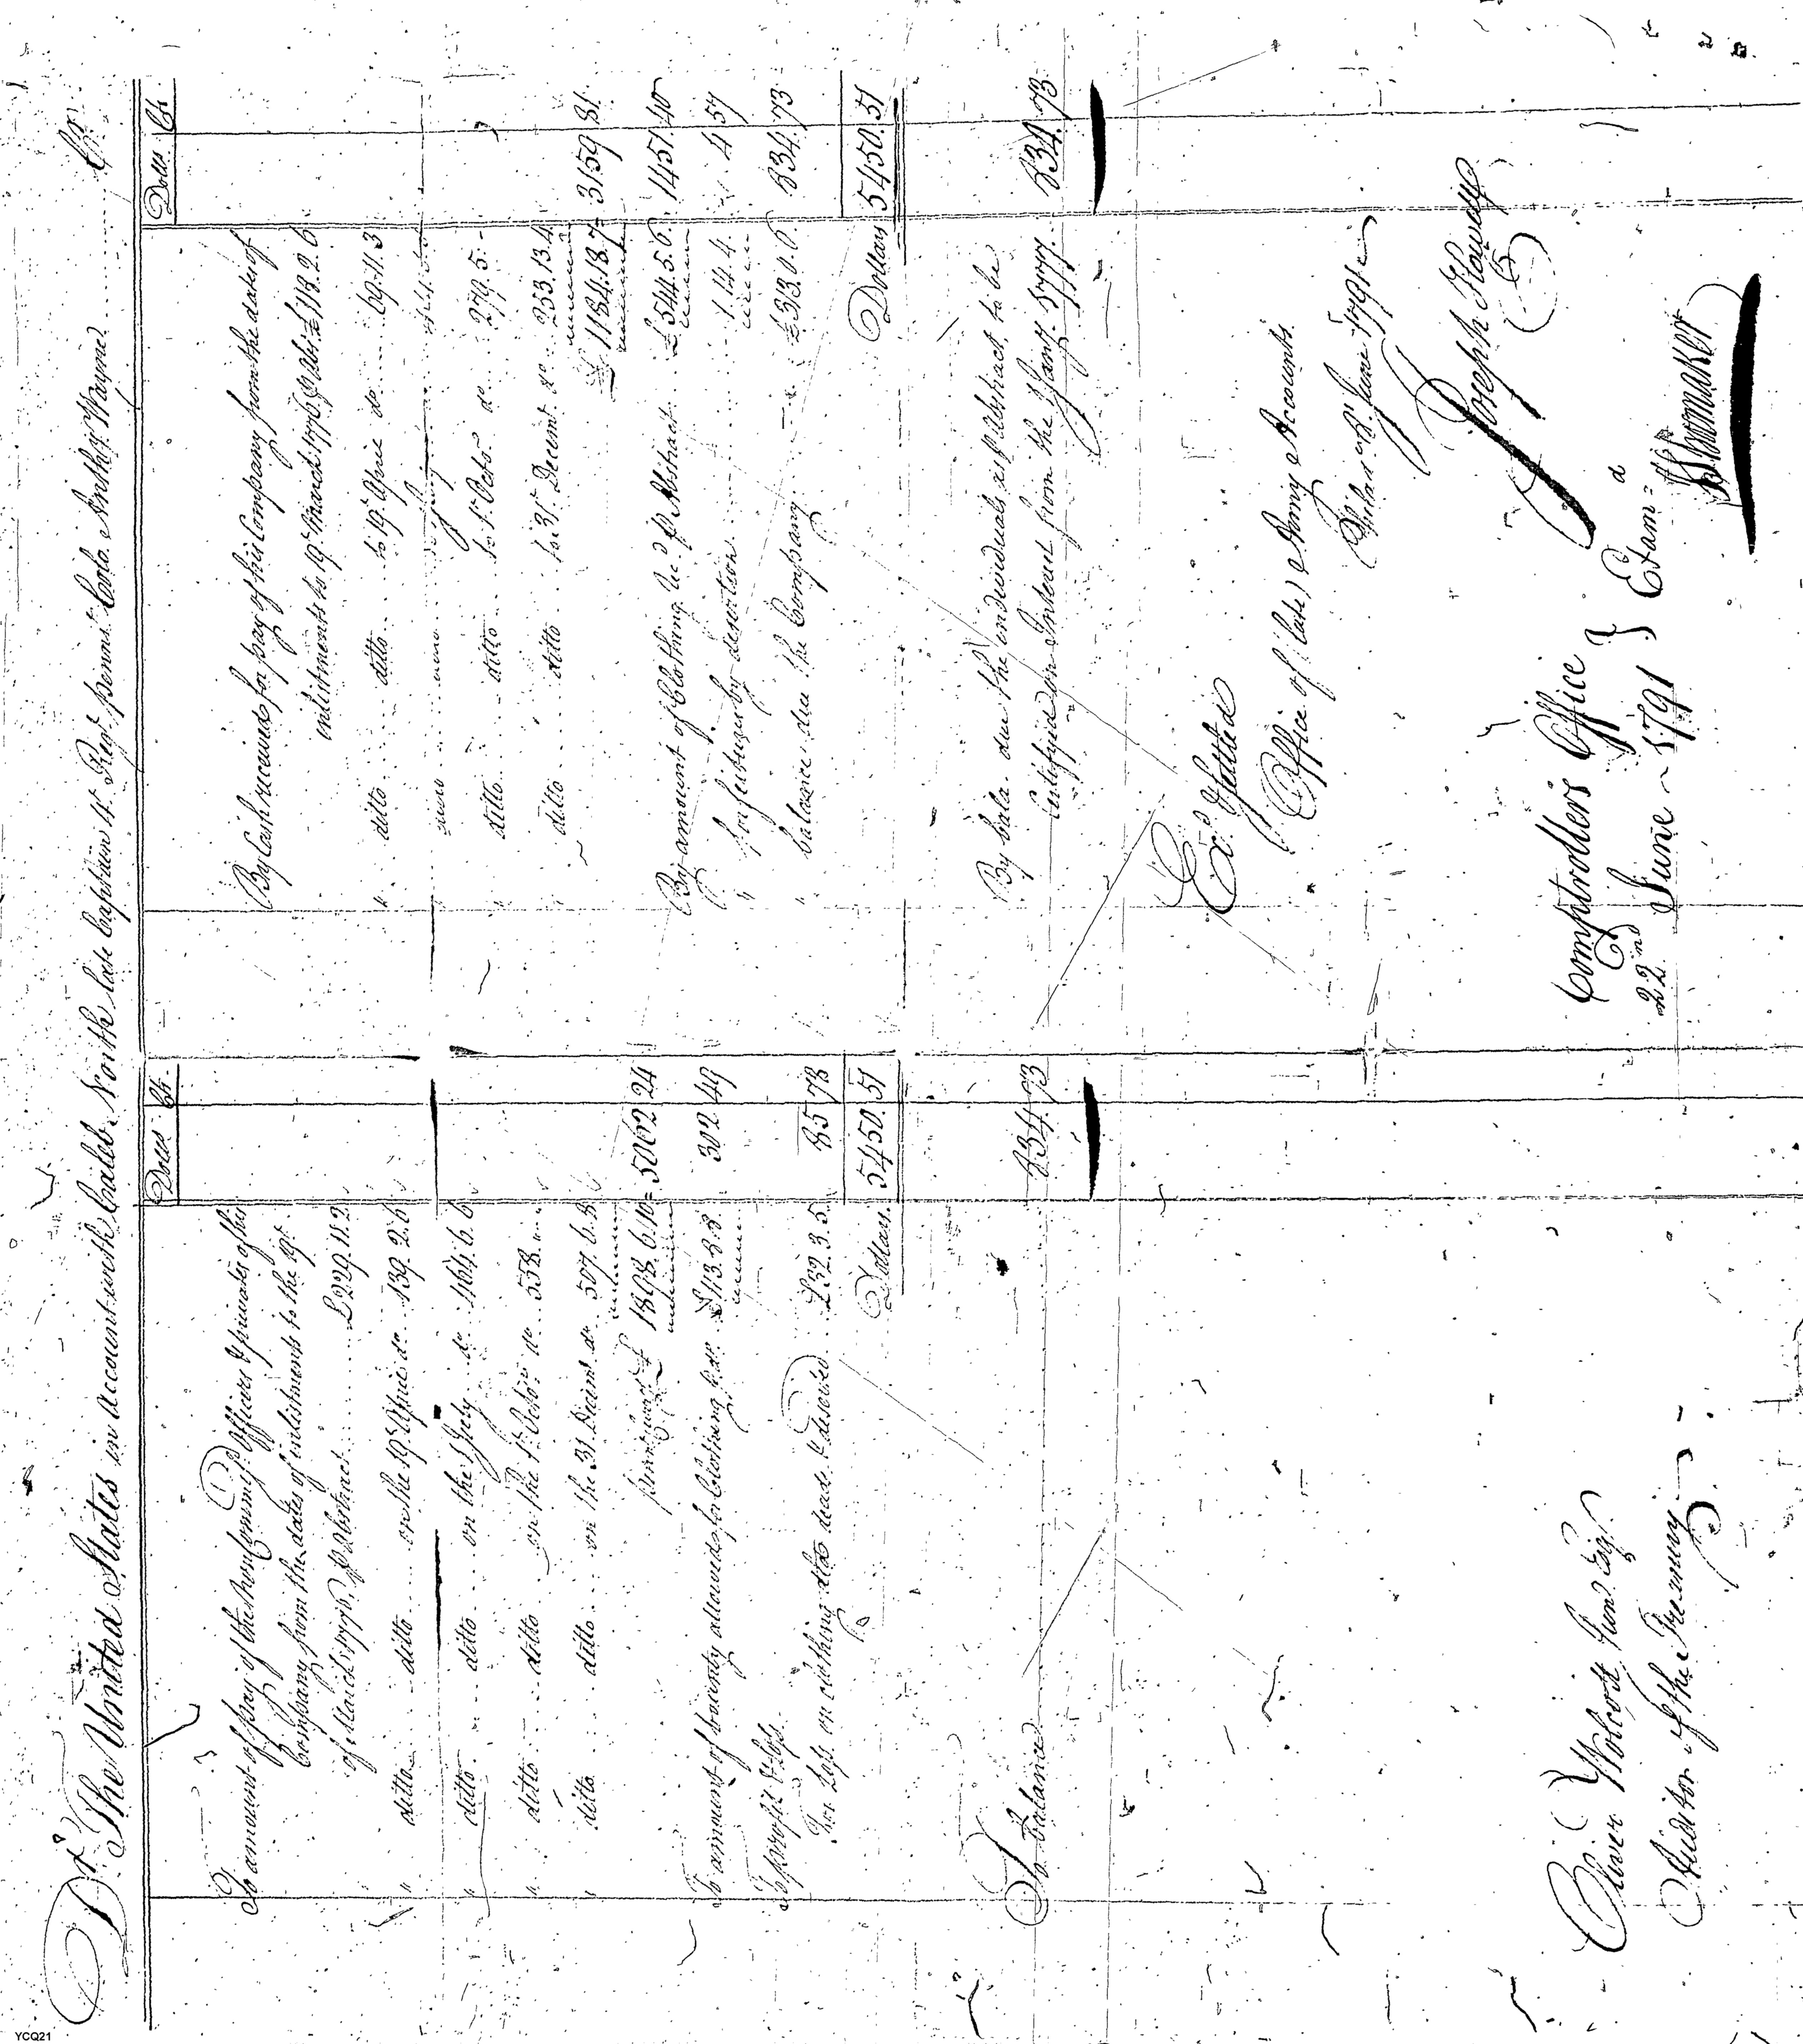 Dr. The United States in Account with Caleb North late Captain 4th Regt. Pennsa. Coolo. Anthy. Wayne Cr.
Dolls Cts.
To amount of pay of the Non Commisd. Officers & privates of his
Company from the dates of inlistments to the 19th
of March 1776, P Abstract £229.11.2
" ditto ditto on the 19th April do 139.2.6
" ditto ditto on the 1 July do 464.6.6
" ditto ditto on the 1st Octor. do 558.
" ditto ditto on the 31 Decemr. do 507.6.8
1898.6.10 = 5062 24
To amount of bounty allowed for Clothing P do £113.8.8 302 49
To profit & loss
For loss on clothing dead & deserted £32.3.5 85 78
Dollars 5450.51
To balance 834.73
Oliver Wolcott Junr. Esqr.
Auditor of the Treasury
Dolls Cts.
By Cash received for pay of his Company from the dates of
inlistments to 19th March 1776 P Abst. £118.2.6
" ditto ditto to 19th April do 69.11.3
ditto ditto to 1st Octor do 279.5.-
ditto ditto to 31st Decemr do 253.13.4
£1184.18.7 = 3159 81
By amount of Clothing &c P Abstract £544.5.6 1451.40
" forfeitures by desertion 1.14.4 4 57
" balance due the Company £313.0.6 834.73
Dollars 5450.51
By bala. due the individuals as P Abstract, to be
Certifyed on Interest from the 1 Jany. 1777. 834.73
Exd. & Settled
Office of (late) Army Accounts
Philada. 8th June 1791
Joseph Howell
Comptrollers Office
22nd June 1791 } Examd
YCQ21